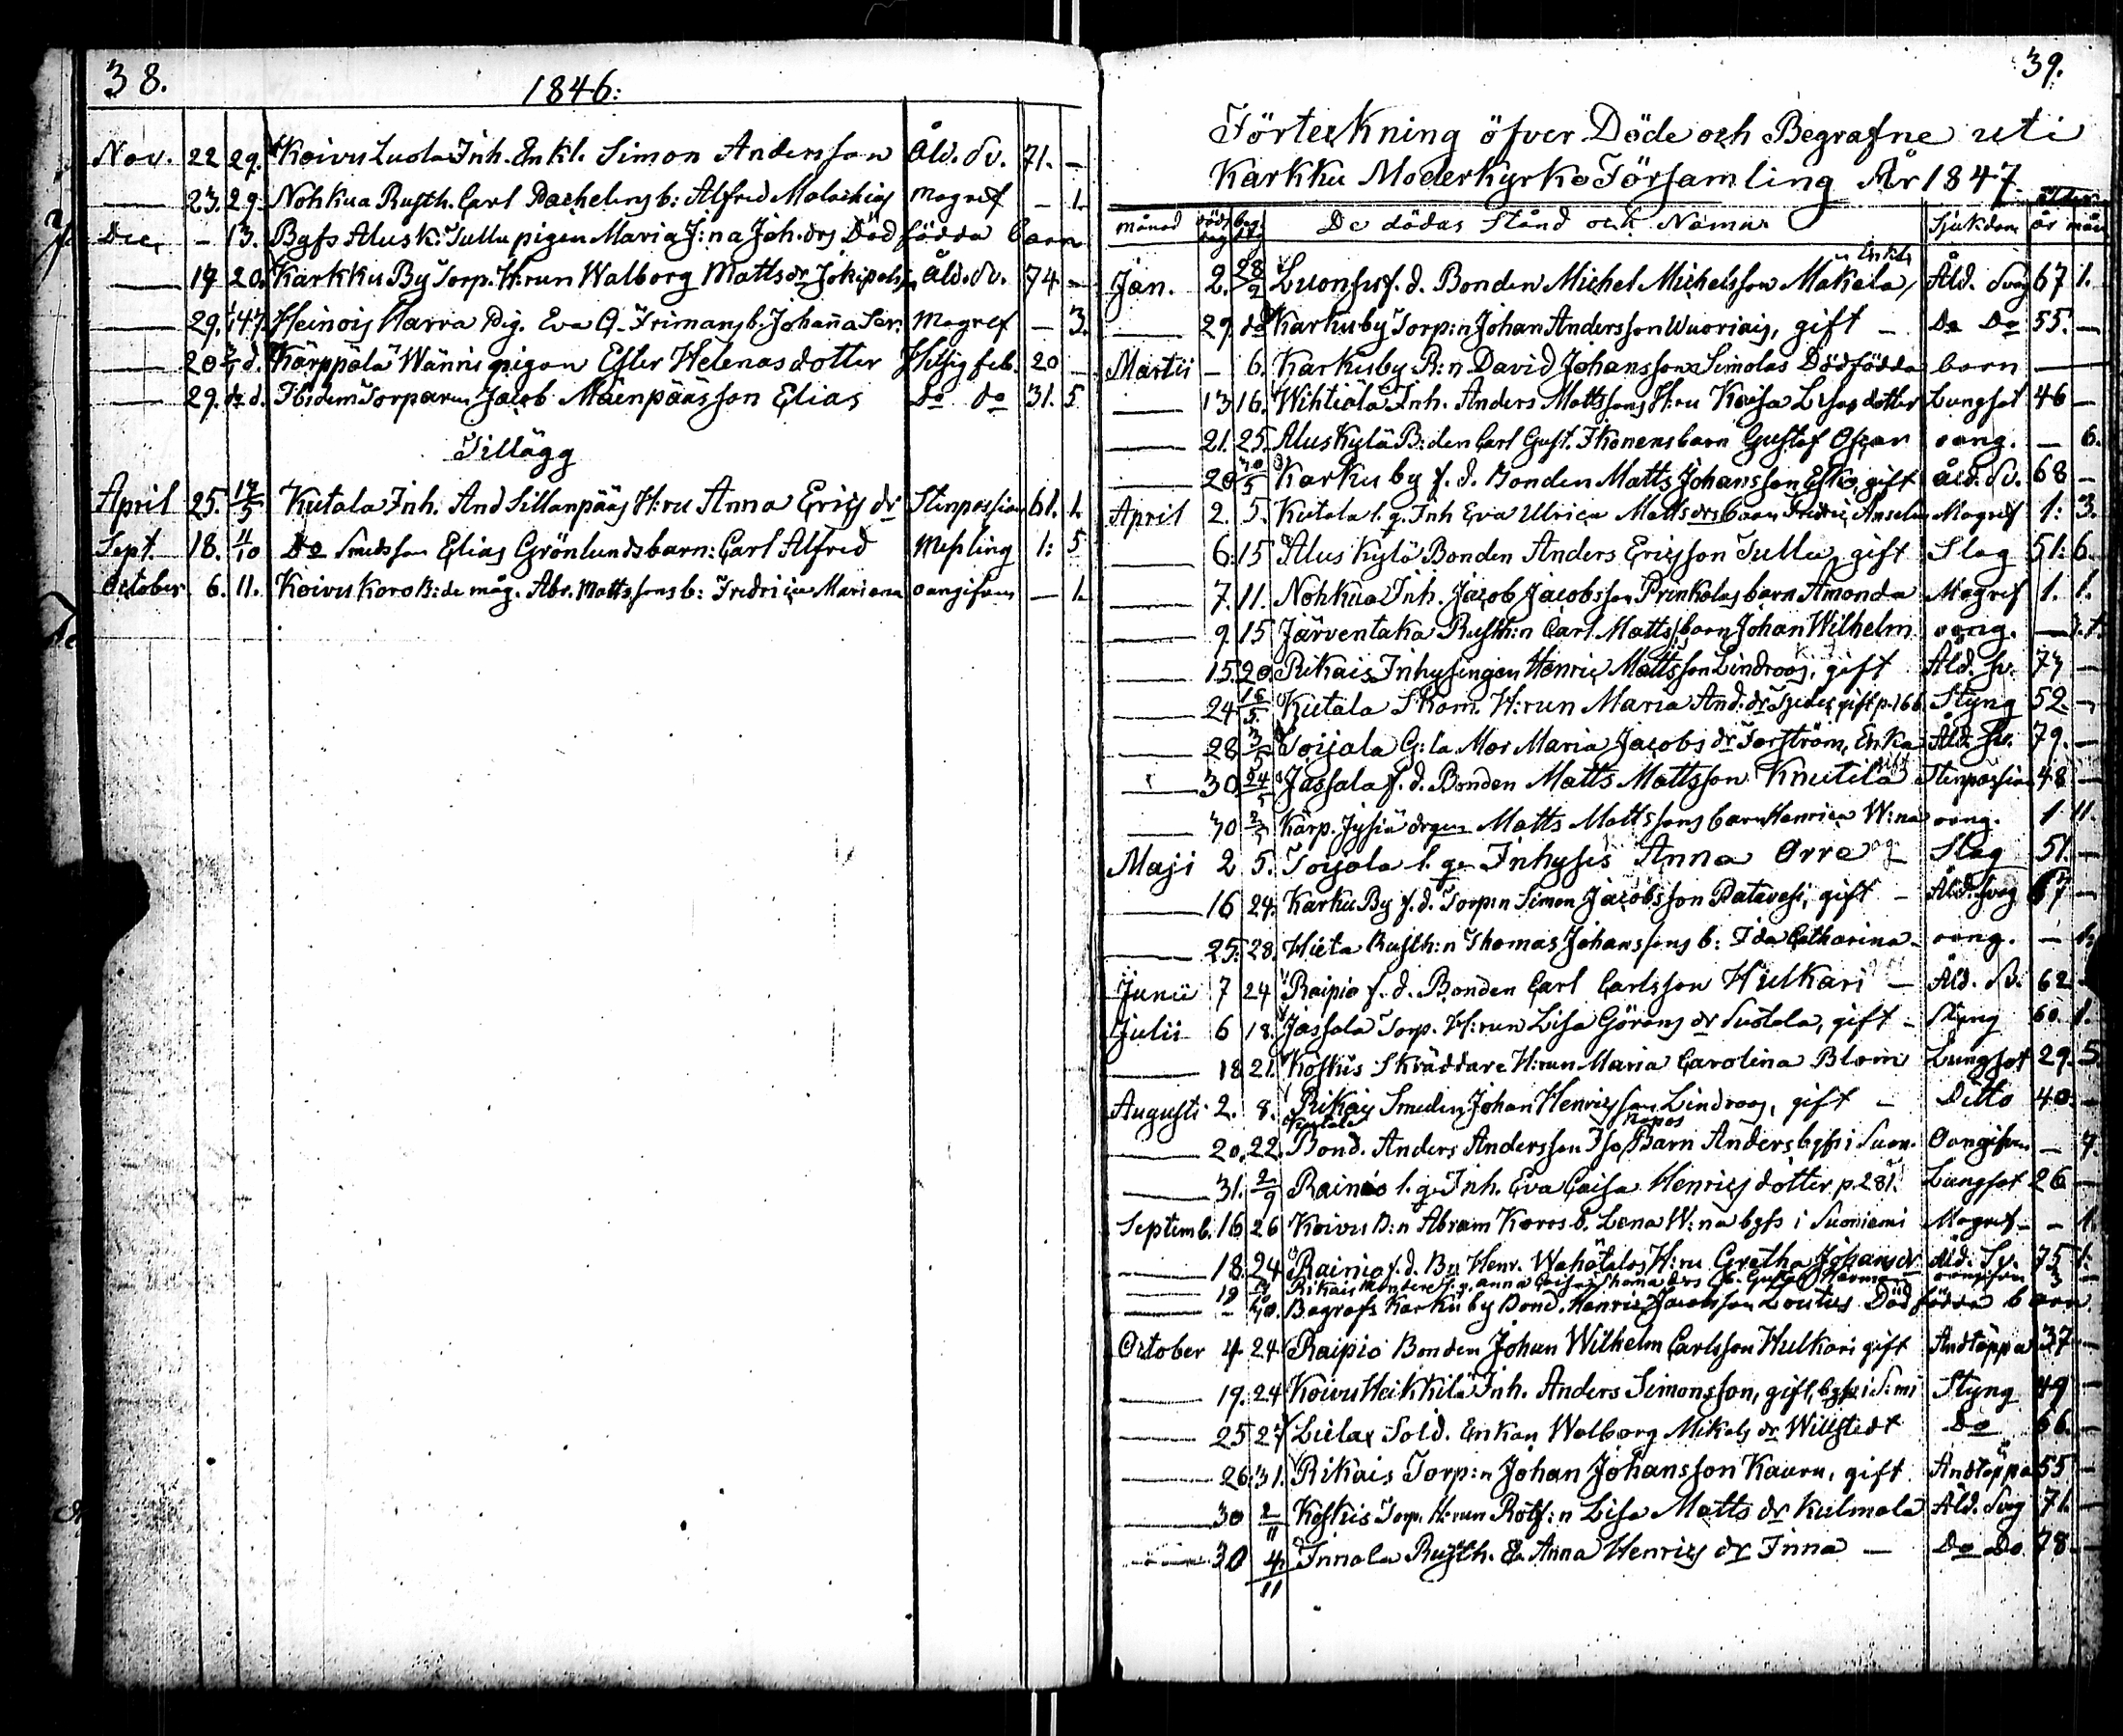 38.
1846:
Nov. 22 29. Koivu Luola Inh. Enkl. Simon Andersson Åld. Sv. 71. –
— 23. 29. Nohkua Rusth. Carl b: Alfred Malachias Magref – 1.
Dec. – 13. Bgfs Alusk: Tullu pigan Maria J:na Joh. drs Död födda barn
— 19 20. Karkku By Torp. H:run Walborg Matts dr Åld. Sv. 74. –
— 29. Heinois Harra Pig. Eva Frimans b: Johanna Ser: Magref – 3.
— 20 Kärppälä Wänni pigan Ester Helenas dotter Hetsig feb. 20 –
— 29. Ibidem Torparen Jacob Mäenpääs son Elias Do do 31. 5
Tillägg
April 25. 17/5 Kutala Inh. And Sillanpääs H:ru Anna Erics dr Stenpassion 61. 1.
Sept. 18. 4/10 Do Smedsson Elias Grönlunds barn: Carl Alfred Messling 1: 5
October 6. 11. Koivu Koro B:de måg. Abr. Mattssons b: Fredrica Mariana oangifven – 1.
39.
Förteckning öfver Döde och Begrafne uti
Karkku Moderkyrko Församling År 1847.
månad döds dag beg. dag De dödas Stånd och Namn Sjukdom ålder år mån
Jan. 2. 28/2 Luonsu f. d. Bonden Michel Michelsson Makela, Enkl. Åld. Svag 67 1.
— 29. do Karkuby Torp:n Johan Andersson Wuoriais, gift – Do Do 55. –
Martii – 6. Karkuby B:n David Johansson Simolas Dödfödda barn —
— 13 16. Wihtiälä Inh. Anders Mattssons H:ru Kaisa Lisas dotter Lungsot 46 –
— 21. 25. Aluskylä B:den Carl Gust. Ikonens barn Gustaf Oscar oang. – 6.
— 20 Karku by f. d. Bonden Matts Johansson Esko, gift åld. Sv. 68 –
April 2. 5. Kutala l. q. Inh Eva Ulrica Matts drs barn Fredric Anselm Magref 1: 3.
— 6. 15 Alus Kylä Bonden Anders Ericsson Tullu, gift Slag 51: 6.
— 7. 11. Nohkua Inh. Jacob Jacobsson Prinkolas barn Amanda Magref 1. 1.
— 9. 15 Järventaka Rusth:n Carl Matts barn Johan Wilhelm oang. –
— 15. 20. Rikais Inhysingen Henric Mattsson Lindroos, gift Åld. sv. 77 –
— 24 16/5. Kutala Skom. H:run Maria And: dr gift p. 166. Styng 52. –
— 28 3/5 Toijala G:la Mor Maria Jacobs dr Forström, Enka Åld. Sv. 79. –
— 30 24/5 Jassala f. d. Bonden Matts Mattsson Knutila gift Stenpassion 48 –
— 30 2/5 Kärp. Jysiä drgen Matts Mattssons barn Henrica W:na oang. 1 11.
Maji 2 5. Toijala l. qe Inhyses Anna Orra Slag 51. –
— 16 24. Karku By f. d. Torp:n Simon Jacobsson Patavesi, gift – Åld. svag 67 –
— 25. 28. Hieta Rusth:n Thomas Johanssons b: Ida Catharina – oang. – 1.
Junii 7 24 Raipio f. d. Bonden Carl Carlsson Hulkari – Åld. Sv. 62 –
Julii 6 18. Jassala Torp. H:run Lisa Görans dr Suotala, gift – Styng 60. 1.
— 18 21. Koskis Skräddare H:run Maria Carolina Blom Lungsot 29. 5
Augusti 2. 8. Rikais Smeden Johan Henricsson Lindroos, gift – Ditto 40. –
— 20. 22. Kutala Bond. Anders Andersson Iso Barn Anders bgfs i Suon. Oangifven – 7.
— 31. 2/9 Rainio l. qe Inh. Eva Caisa Henrics dotter p. 281. Lungsot 26 –
Septemb. 16 26 Koivu B:n Abram Koros d. Lena W:na bgfs i Suoniemi Magref – – 1.
— 18. 24 Rainio f. d. Bn Henr. Wahätalos H:ru Gretha Johans dr åld. Sv. 75 1.
— 19 Rikais l. q. Anna Caisa Thoma drs Gustaf Herman oangifven 3 –
— – Begrafs Karku by Bond. Henric Jacobsson Loutus Död födda barn
October 4 24 Raipio Bonden Johan Wilhelm Carlsson Hulkari gift Andtäppa 37 –
— 19. 24 Koivu Heikkilä Inh. Anders Simonsson, gift, bgfs i S:mi Styng 49 –
— 25 27 Lielax Sold. Enkan Walborg Mikels dr Willstedt Do 66. –
— 26. 31. Rikais Torp:n Johan Johansson Kauru, gift. Andtäppa 55 –
— 30 2/11 Koskis Torp. H:run Rotf:n Lisa Matts dr Kulmala Åld. Svag 71. –
— 30 4/11 Innala Rusth. E. Anna Henrics dr Inna – Do Do 78 –